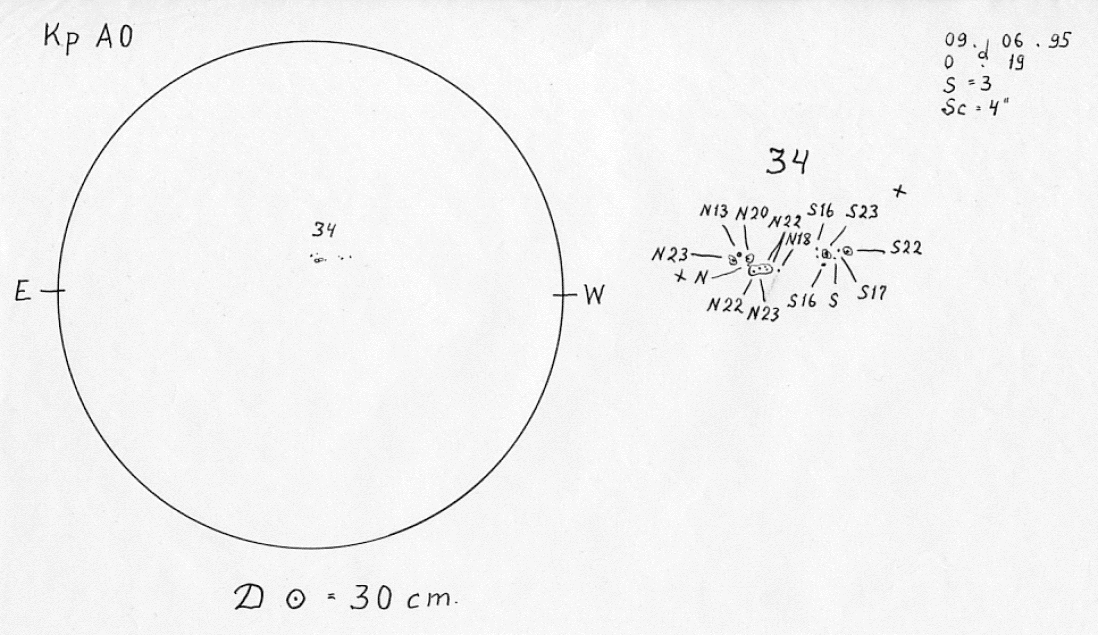 Кр АО
09. d 06 . 95
0 . 19
S = 3
Sc = 4"
34
34
N13 N20 N22 S16 S23
N18
N23 S22
N
N22 N23 S16 S S17
E W
D ⊙ = 30 cm.